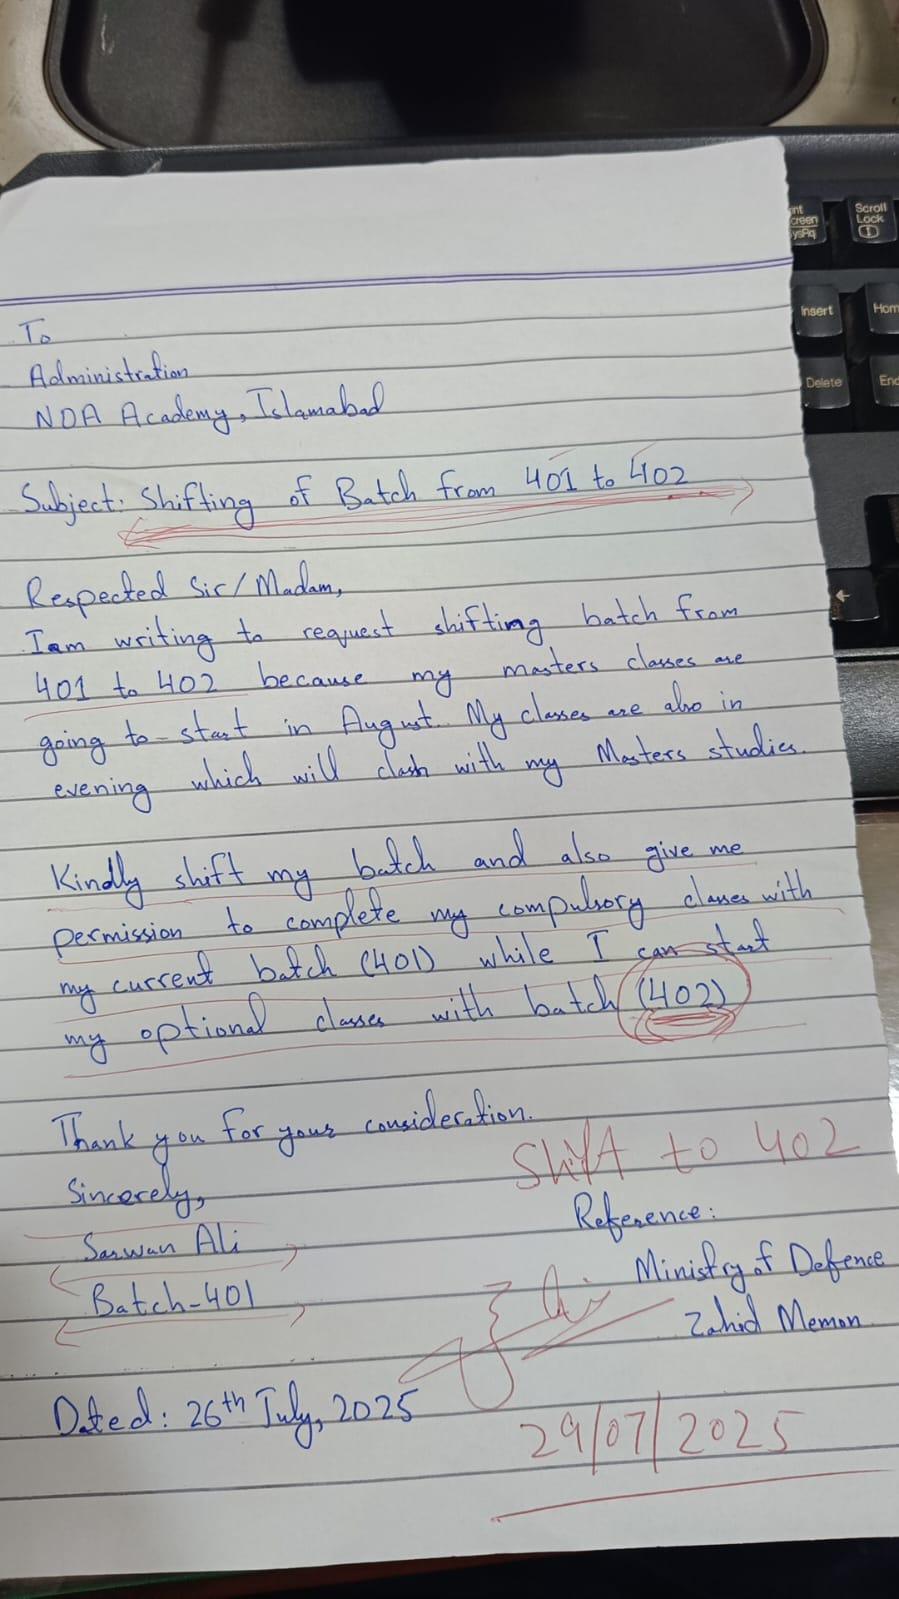 To
Administration
NOA Academy, Islamabad
Subject: Shifting of Batch from 401 to 402
Respected Sir/Madam,
I am writing to request shifting batch from
401 to 402 because my masters classes are
going to start in August. My classes are also in
evening which will clash with my Masters studies.
Kindly shift my batch and also give me
permission to complete my compulsory classes with
my current batch (401) while I can start
my optional classes with batch (402)
Thank you for your consideration.
Shift to 402
Sincerely,
Reference:
Sarwan Ali
Ministry of Defence
Batch-401
Zahid Memon
Dated: 26th July, 2025
29/07/2025
Scroll
Lock
Insert
Hom
Delete
End